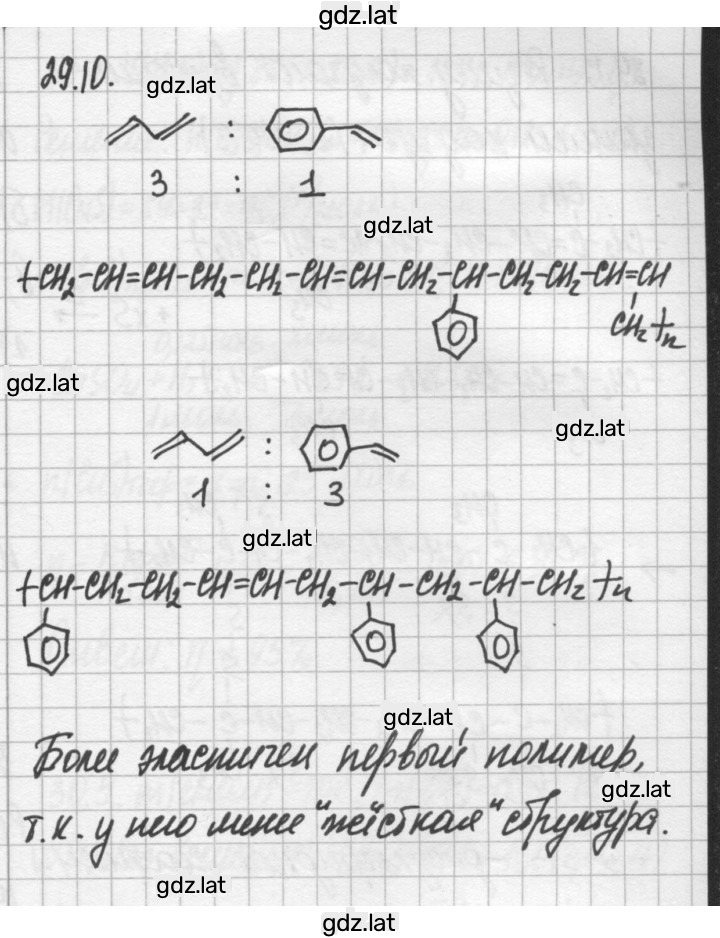 gdz.lat
29.10.
gdz.lat
:
3 : 1
gdz.lat
+CH2-CH=CH-CH2-CH2-CH=CH-CH2-CH-CH2-CH2-CH=CH
CH2+n
gdz.lat
gdz.lat
:
1 : 3
gdz.lat
+CH-CH2-CH2-CH=CH-CH2-CH-CH2-CH-CH2+n
gdz.lat
Более эластичен первый полимер,
gdz.lat
т.к. у него менее "жёсткая" структура.
gdz.lat
gdz.lat